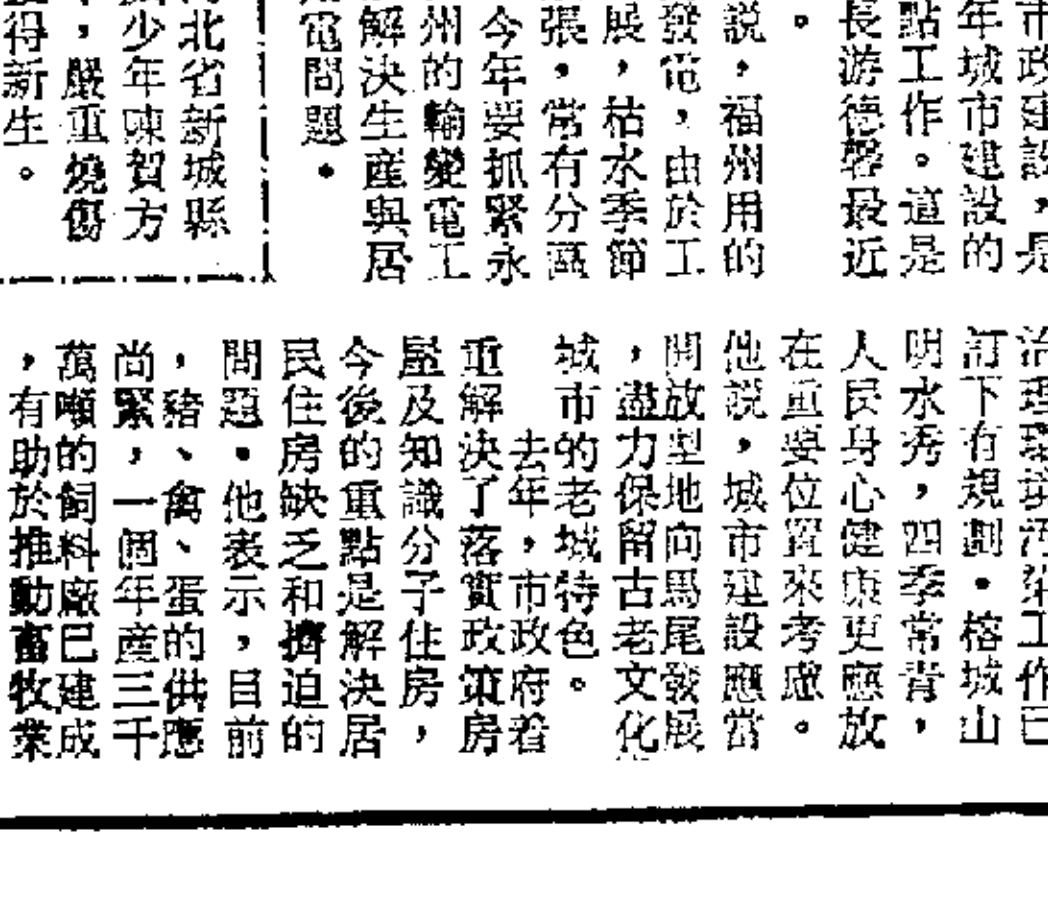 市政建設，是
年城市建設的
點工作。道是
長游德馨最近
。
説，福州用的
發電，由於工
展，枯水季節
張，常有分區
今年要抓緊永
州的輸變電工
解決生産與居
用電問題。
河北省新城縣
少年陳賀方
，嚴重燒傷
得新生。
治理環境污染工作已
訂下有規劃。榕城山
明水秀，四季常青，
人民身心健康更應放
在重要位置來考慮。
他説，城市建設應當
開放型地向馬尾發展
，盡力保留古老文化
城市的老城特色。
去年，市政府着
重解決了落實政策房
屋及知識分子住房，
今後的重點是解決居
民住房缺乏和擠迫的
問題。他表示，目前
，豬、禽、蛋的供應
尚緊，一個年産三千
萬噸的飼料廠已建成
，有助於推動畜牧業